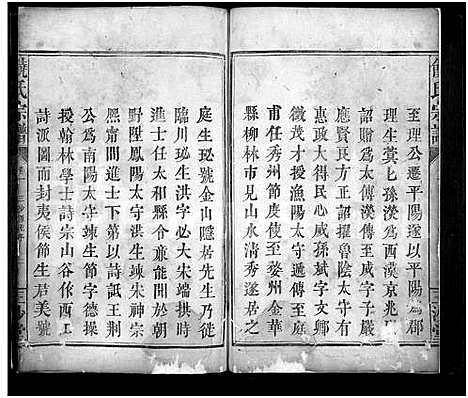 饒氏宗譜
至理公遷平陽遂以平陽為郡
理生蓂七孫漢為西漢京兆
詔贈為太傅漢傳至威字子嚴
應賢良方正詔擢魯陰太守
惠政大得民心威孫斌字文卿
徵茂才授漁陽太守遞傳至庭
甫任秀州節度使世居金華
縣柳林市見山水清秀遂居
庭生珌號金山隱居先生乃徙
臨川珌生洪字必大宋端拱時
進士任太和縣令兼能開於朝
野陞鳳陽太守洪生竦宋神宗
熙甯間進士下第以詩詆王荆
公為南陽太守竦生節字德操
授翰林學士詩宗山谷依仿一
詩派圖而封夷侯節生君美號
饒氏宗譜